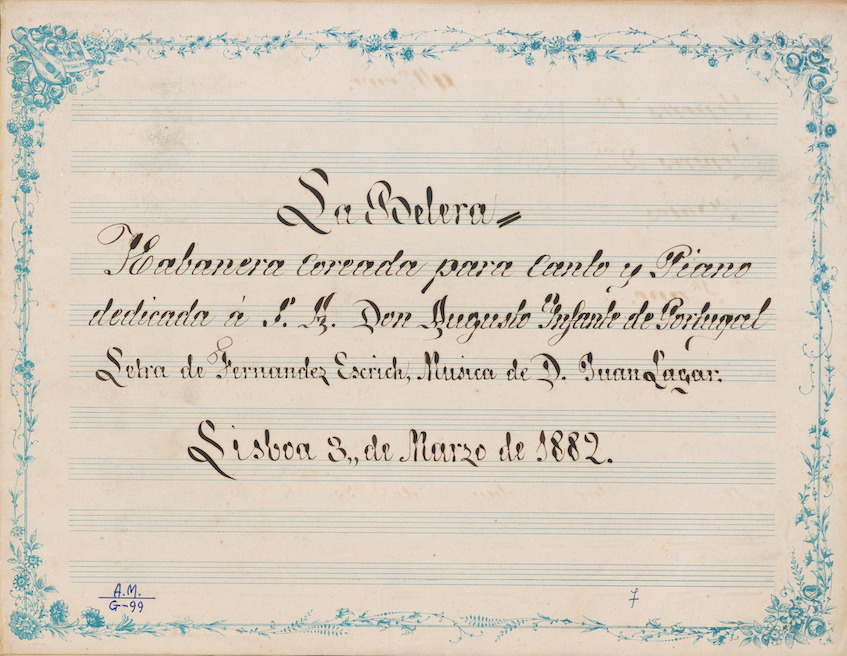 La Belera =
Habanera coreada para Canto y Piano
dedicada á S. A. Don Augusto Infante de Portugal
Letra de Fernandez Escrich, Musica de D. Juan Lagar.
Lisboa 3,, de Marzo de 1882.
A.M.
G-99
7